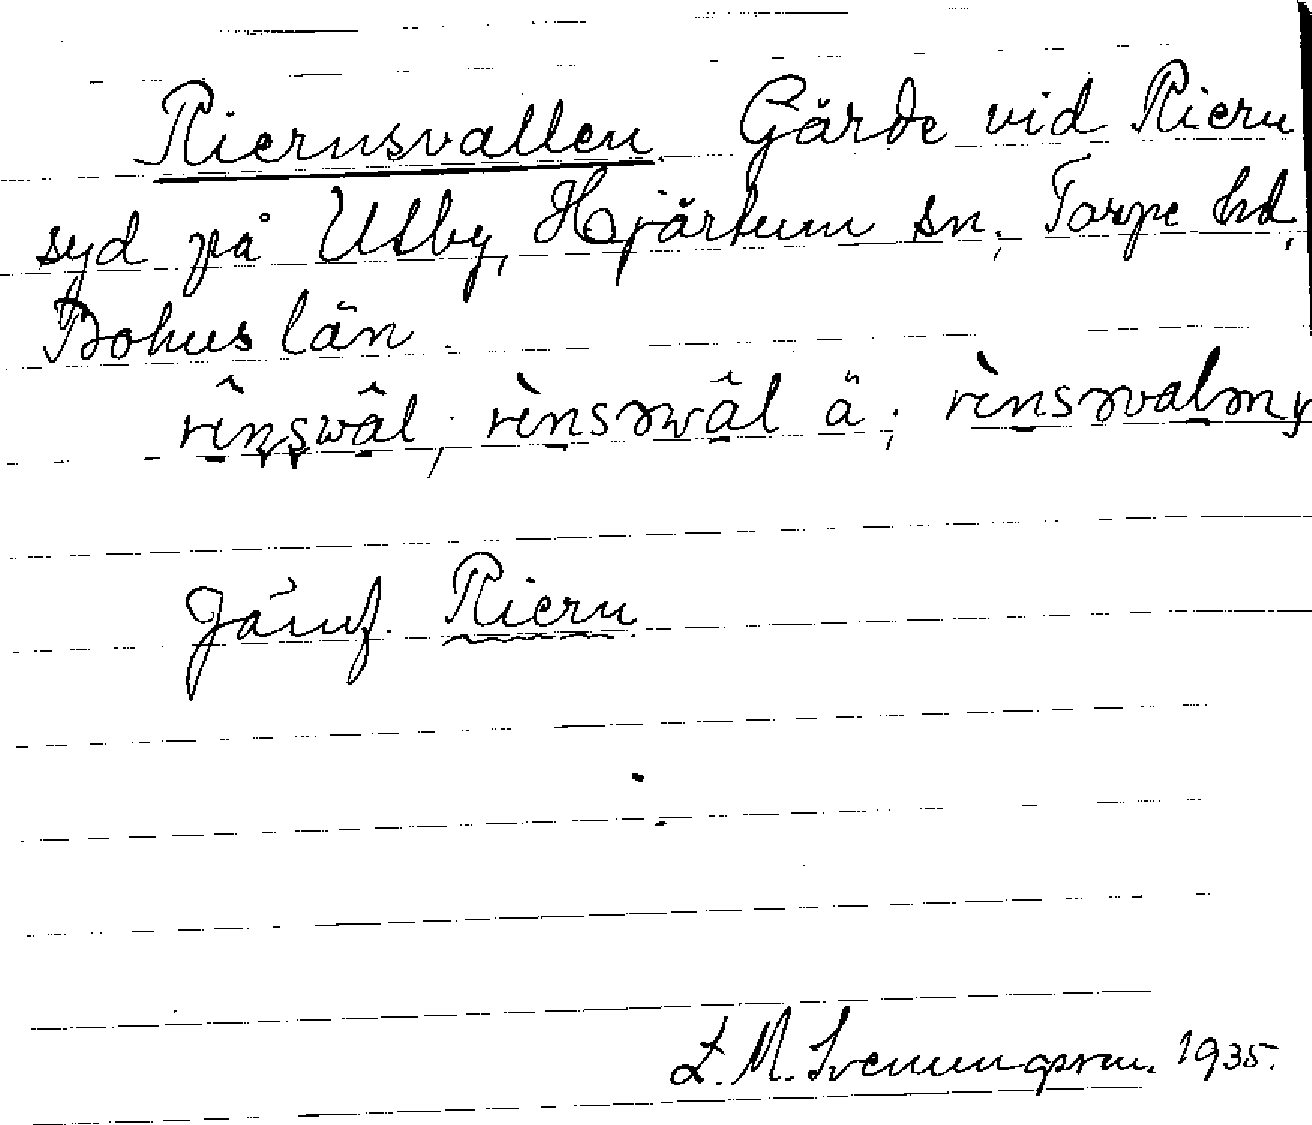 Riernsvallen. Gärde vid Riern
syd på Utby, Hjärtum sn, Torpe hd,
Bohus län
Jämf. Riern
L. M. Svenungsson. 1935.